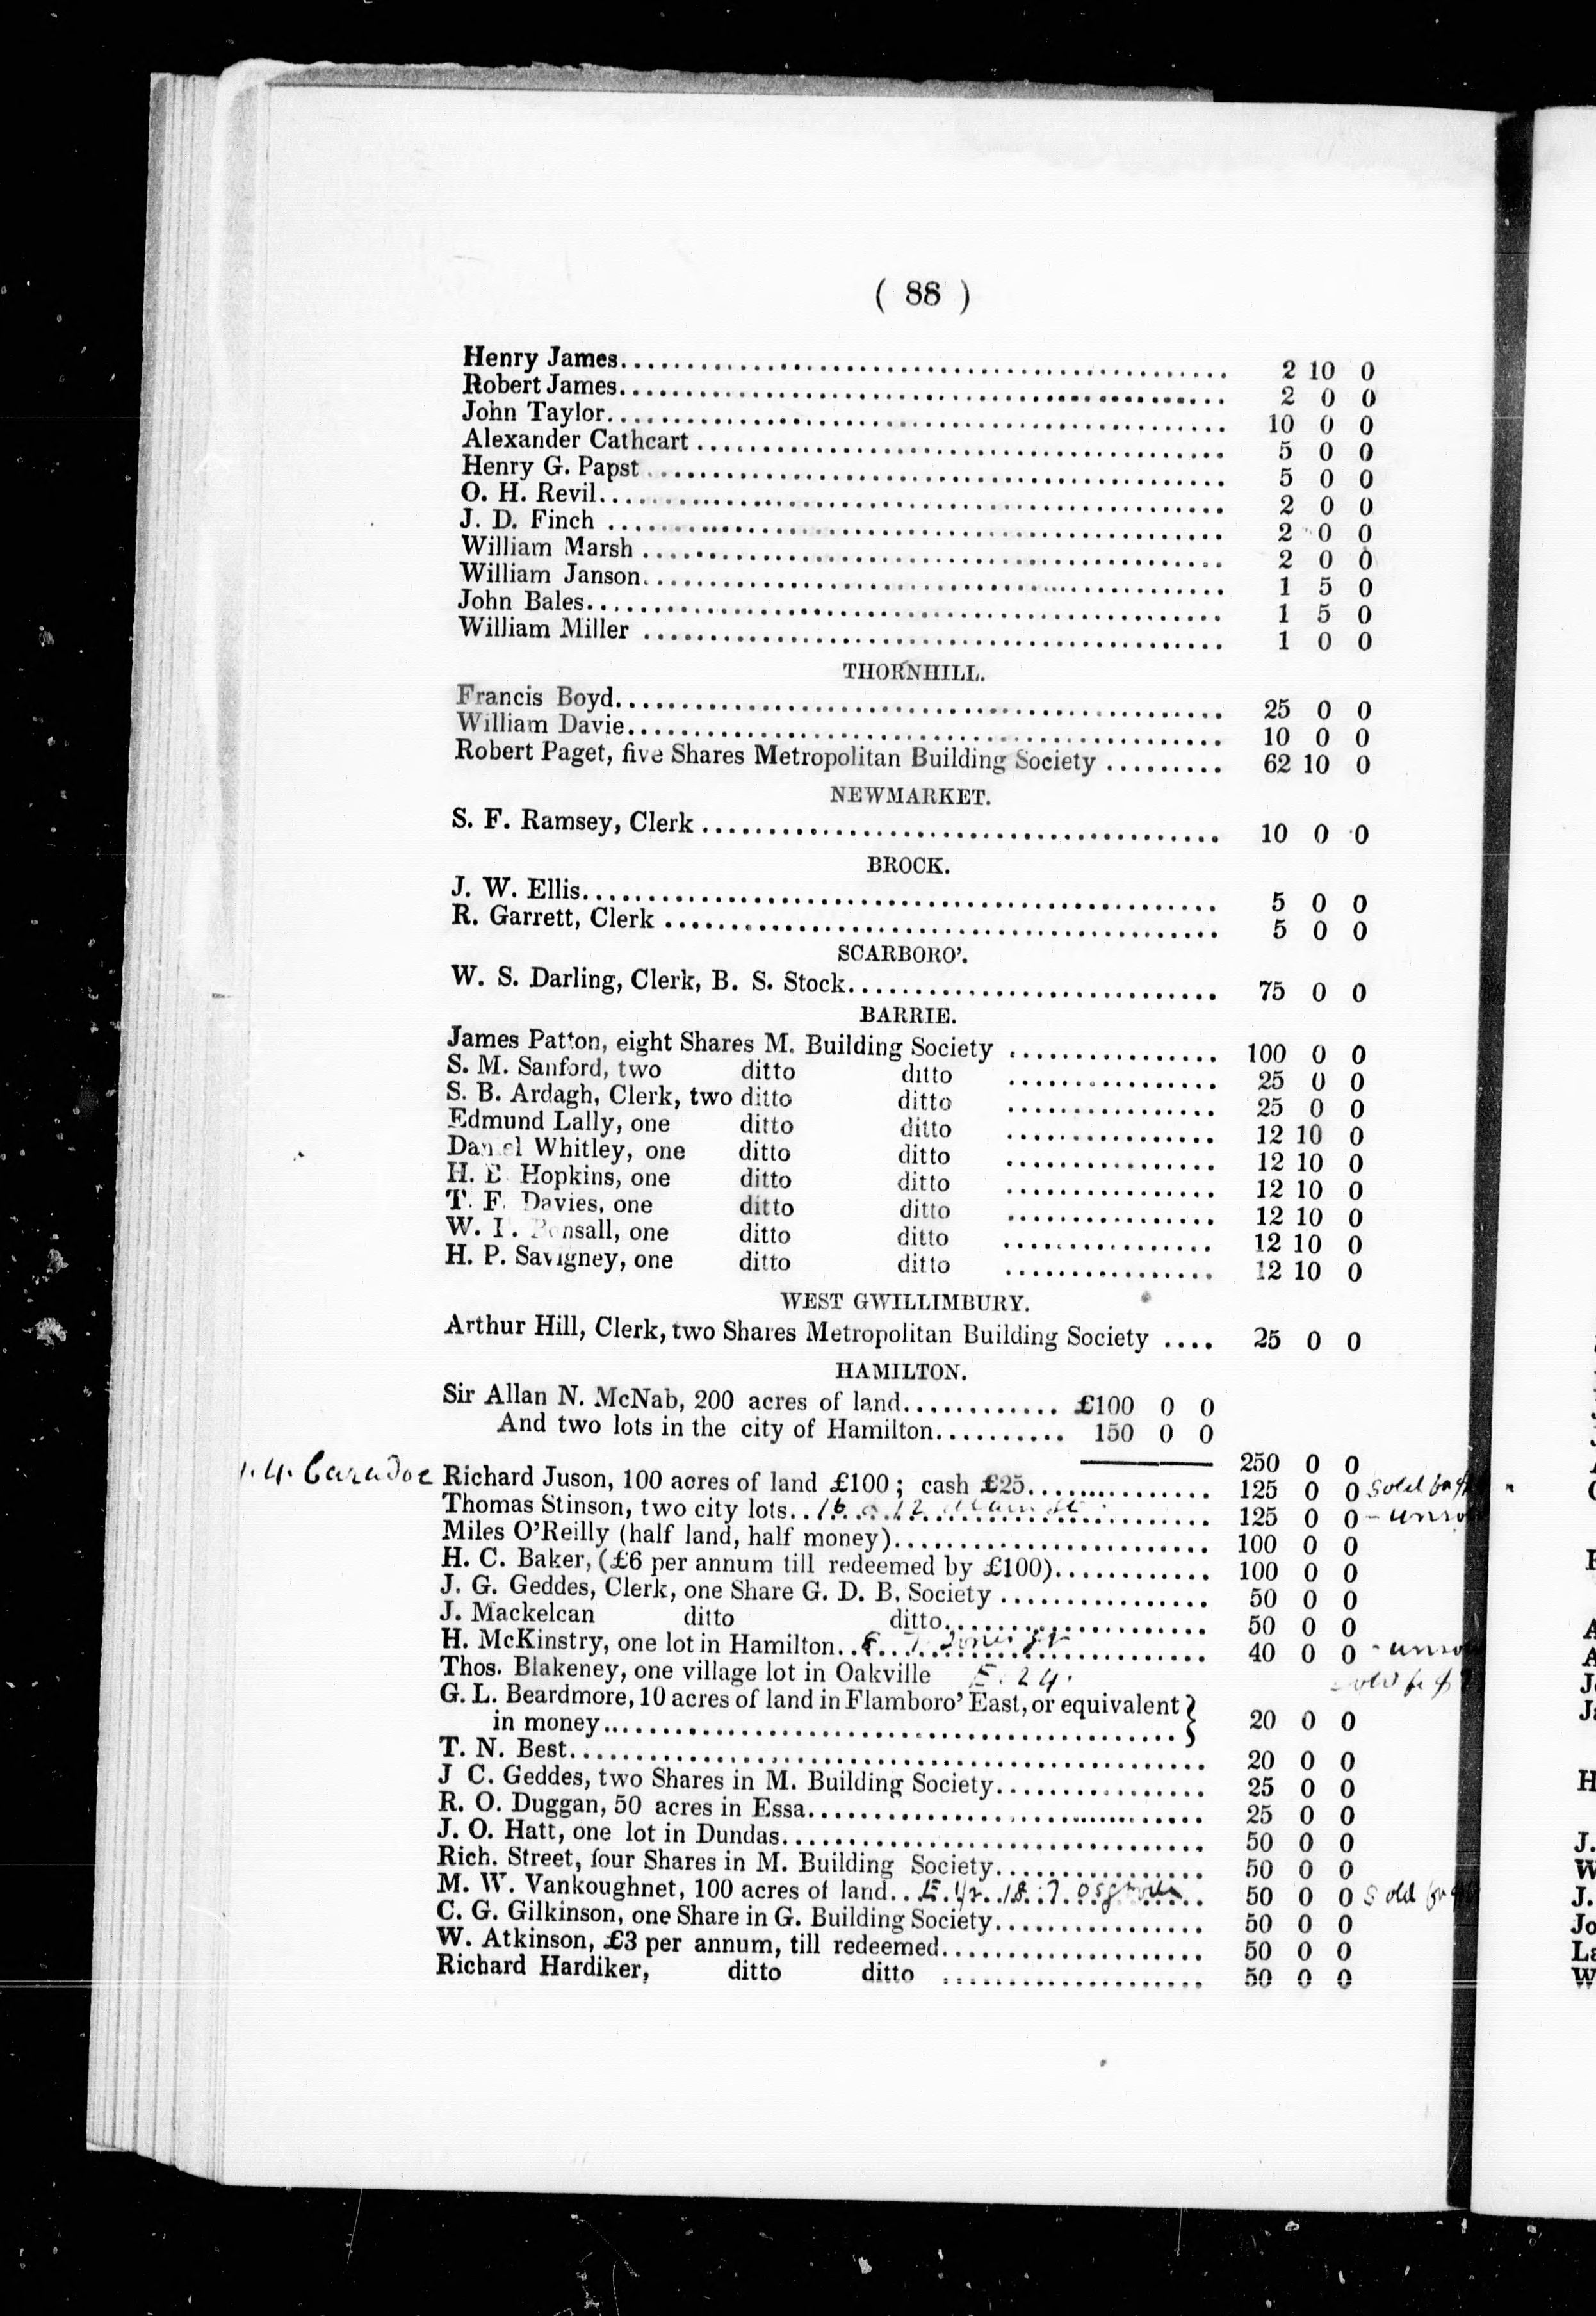 ( 88 )
Henry James................................................ 2 10 0
Robert James................................................ 2 0 0
John Taylor................................................ 10 0 0
Alexander Cathcart ........................................ 5 0 0
Henry G. Papst ............................................ 5 0 0
O. H. Revil................................................ 2 0 0
J. D. Finch ............................................... 2 0 0
William Marsh ............................................. 2 0 0
William Janson............................................. 1 5 0
John Bales................................................. 1 5 0
William Miller ............................................ 1 0 0
THORNHILL.
Francis Boyd............................................... 25 0 0
William Davie.............................................. 10 0 0
Robert Paget, five Shares Metropolitan Building Society ......... 62 10 0
NEWMARKET.
S. F. Ramsey, Clerk ....................................... 10 0 0
BROCK.
J. W. Ellis................................................ 5 0 0
R. Garrett, Clerk ......................................... 5 0 0
SCARBORO'.
W. S. Darling, Clerk, B. S. Stock............................ 75 0 0
BARRIE.
James Patton, eight Shares M. Building Society ................ 100 0 0
S. M. Sanford, two ditto ditto ................ 25 0 0
S. B. Ardagh, Clerk, two ditto ditto ................ 25 0 0
Edmund Lally, one ditto ditto ................ 12 10 0
Daniel Whitley, one ditto ditto ................ 12 10 0
H. Hopkins, one ditto ditto ................ 12 10 0
T. F. Davies, one ditto ditto ................ 12 10 0
W. one ditto ditto ................ 12 10 0
H. P. Savigney, one ditto ditto ................ 12 10 0
WEST GWILLIMBURY.
Arthur Hill, Clerk, two Shares Metropolitan Building Society .... 25 0 0
HAMILTON.
Sir Allan N. McNab, 200 acres of land............ £100 0 0
And two lots in the city of Hamilton.......... 150 0 0
250 0 0
4. Caradoc Richard Juson, 100 acres of land £100; cash £25.............. 125 0 0 Sold
Thomas Stinson, two city lots.............................. 125 0 0
Miles O'Reilly (half land, half money)........................ 100 0 0
H. C. Baker, (£6 per annum till redeemed by £100)............ 100 0 0
J. G. Geddes, Clerk, one Share G. D. B. Society ................ 50 0 0
J. Mackelcan ditto ditto.................... 50 0 0
H. McKinstry, one lot in Hamilton............................ 40 0 0
Thos. Blakeney, one village lot in Oakville E. 24.
G. L. Beardmore, 10 acres of land in Flamboro' East, or equivalent }
in money........................................... } 20 0 0
T. N. Best................................................ 20 0 0
J C. Geddes, two Shares in M. Building Society................ 25 0 0
R. O. Duggan, 50 acres in Essa.............................. 25 0 0
J. O. Hatt, one lot in Dundas................................ 50 0 0
Rich. Street, four Shares in M. Building Society................ 50 0 0
M. W. Vankoughnet, 100 acres of land.. E. 1/2 18. 7 Osgoode 50 0 0 Sold
C. G. Gilkinson, one Share in G. Building Society................ 50 0 0
W. Atkinson, £3 per annum, till redeemed.................... 50 0 0
Richard Hardiker, ditto ditto .................... 50 0 0